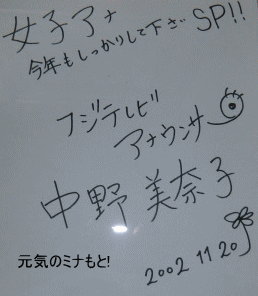 女子アナ
今年もしっかりして下さいSP!!
フジテレビ
アナウンサー
中野 美奈子
元気のミナもと!
2002 11 20